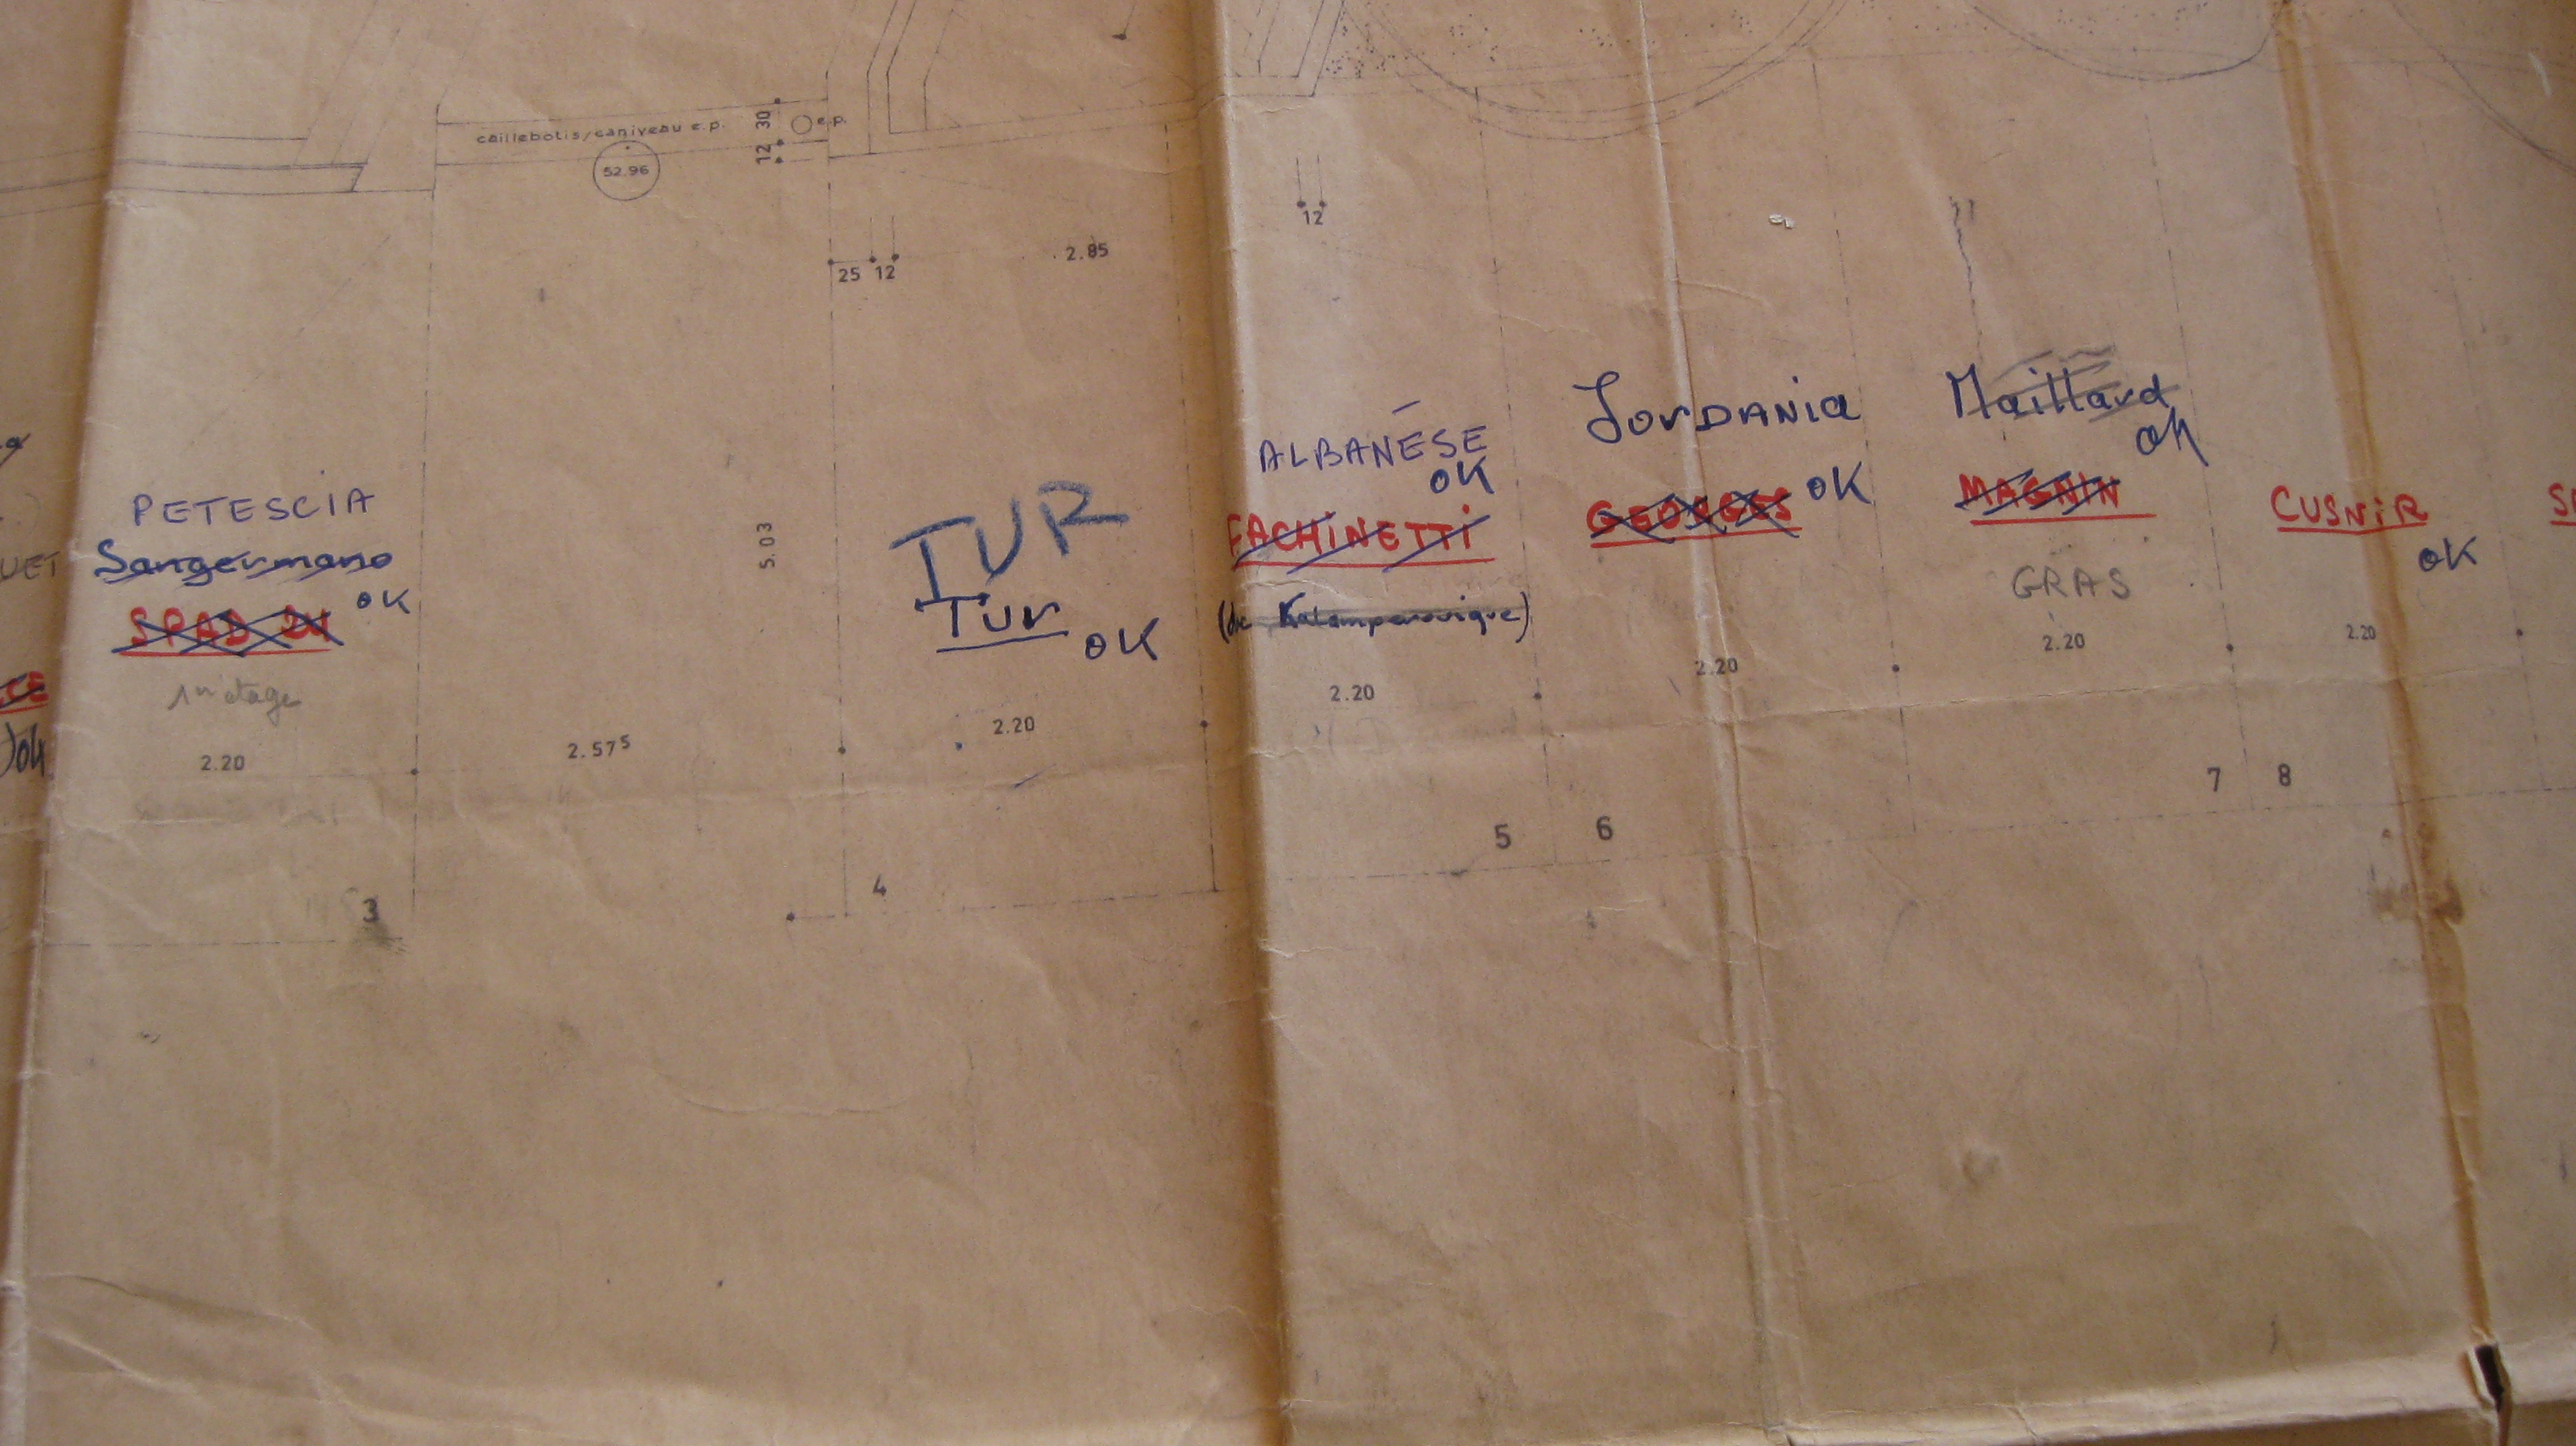 caillebotis/caniveau e.p.
30
e.p.
12
52.96
12
25 12
2.85
5.03
PETESCIA
Sangermano
SPAD
OK
1er étage
2.20
3
2.57⁵
TUR
Tur
OK
2.20
4
ALBANESE
OK
FACHINETTI
2.20
5
JorDANia
GEORGES
OK
2.20
6
Maillard
OK
MAGNIN
GRAS
2.20
7
CUSNiR
OK
2.20
8
UET
OK